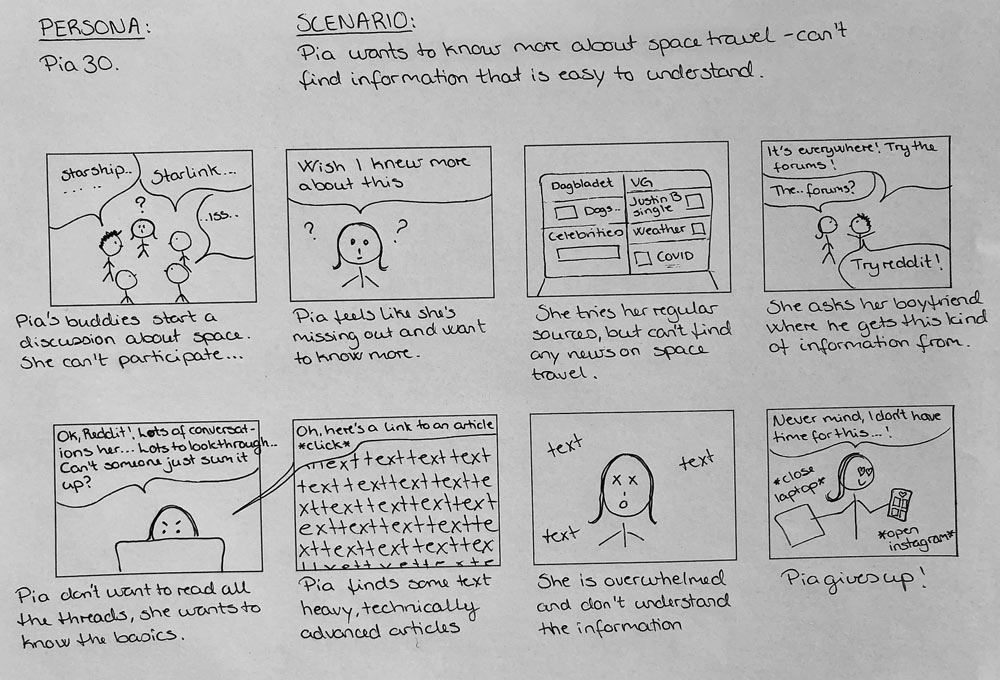 PERSONA:
Pia 30.
SCENARIO:
Pia wants to know more about space travel - can't
find information that is easy to understand.
starship..
.. .. ..
Starlink...
..iss..
?
Pia's buddies start a
discussion about space.
She can't participate...
Wish I knew more
about this
? ?
Pia feels like she's
missing out and want
to know more.
Dagbladet
Dogs..
Celebrities
VG
Justin B
single
Weather
COVID
She tries her regular
sources, but can't find
any news on space
travel.
It's everywhere! Try the
forums!
The.. forums?
Try reddit!
She asks her boyfriend
where he gets this kind
of information from.
Ok, Reddit! Lots of conversat-
ions her... Lots to look through..
Can't someone just sum it
up?
Pia don't want to read all
the threads, she wants to
know the basics.
Oh, here's a link to an article
*click*
text text text text
text text text text te
xt text text text text
ext text text text te
xt text text text tex
Pia finds some text
heavy, technically
advanced articles
text
text
text
She is overwhelmed
and don't understand
the information
Never mind, I don't have
time for this...!
*close
laptop*
*open
instagram*
Pia gives up!